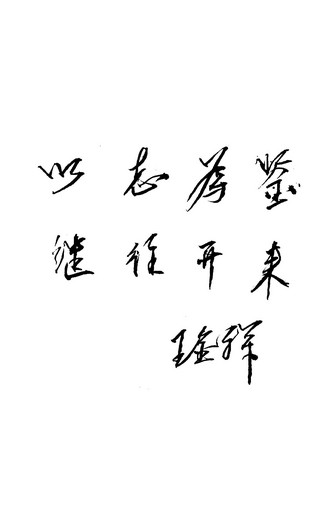 以志为鉴
继往开来
王金祥